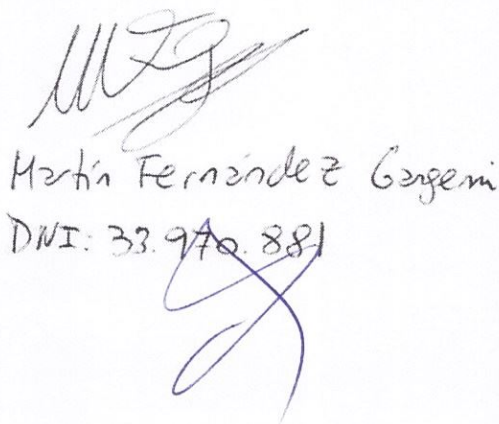 Martín Fernández Gargeni
DNI: 33.970.881